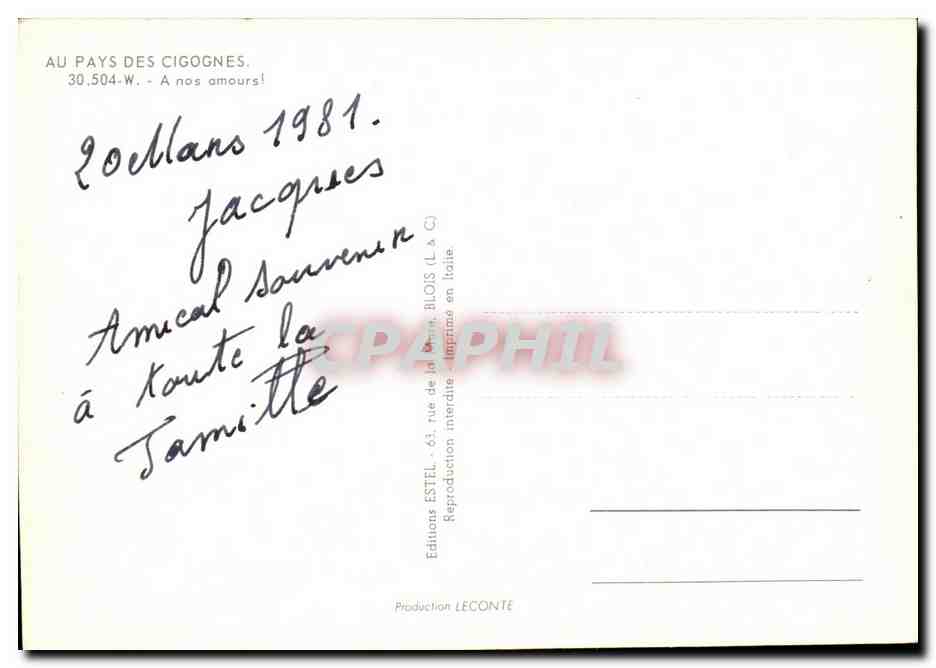 AU PAYS DES CIGOGNES.
30.504-W. - A nos amours!
20 Mars 1981.
Jacques
Amical souvenir
à toute la
famille
Editions ESTEL - 63, rue de la Mare, BLOIS (L. & C)
Reproduction interdite - Imprimé en Italie.
CPAPHIL
Production LECONTE